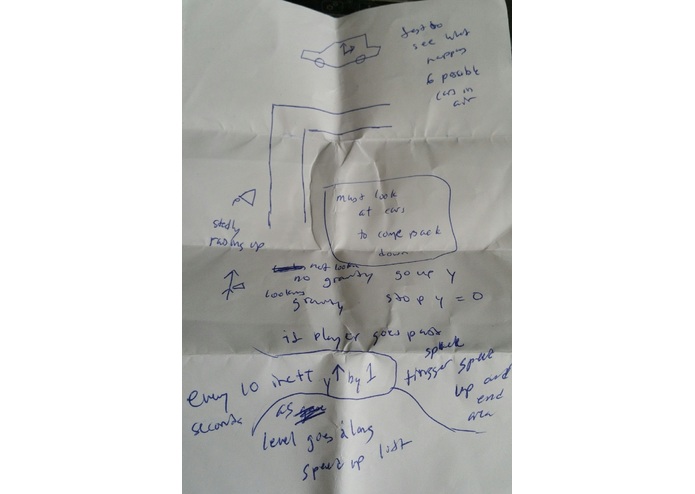 test to
see what
happens
6 possible
cars in
air
must look
at cars
to come back
down
rising up
not looking
no gravity go up y
looking
gravity stop y = 0
if player goes past
trigger speed
up and
end
area
every 10
seconds
y ↑ by 1
as
level goes along
speed up